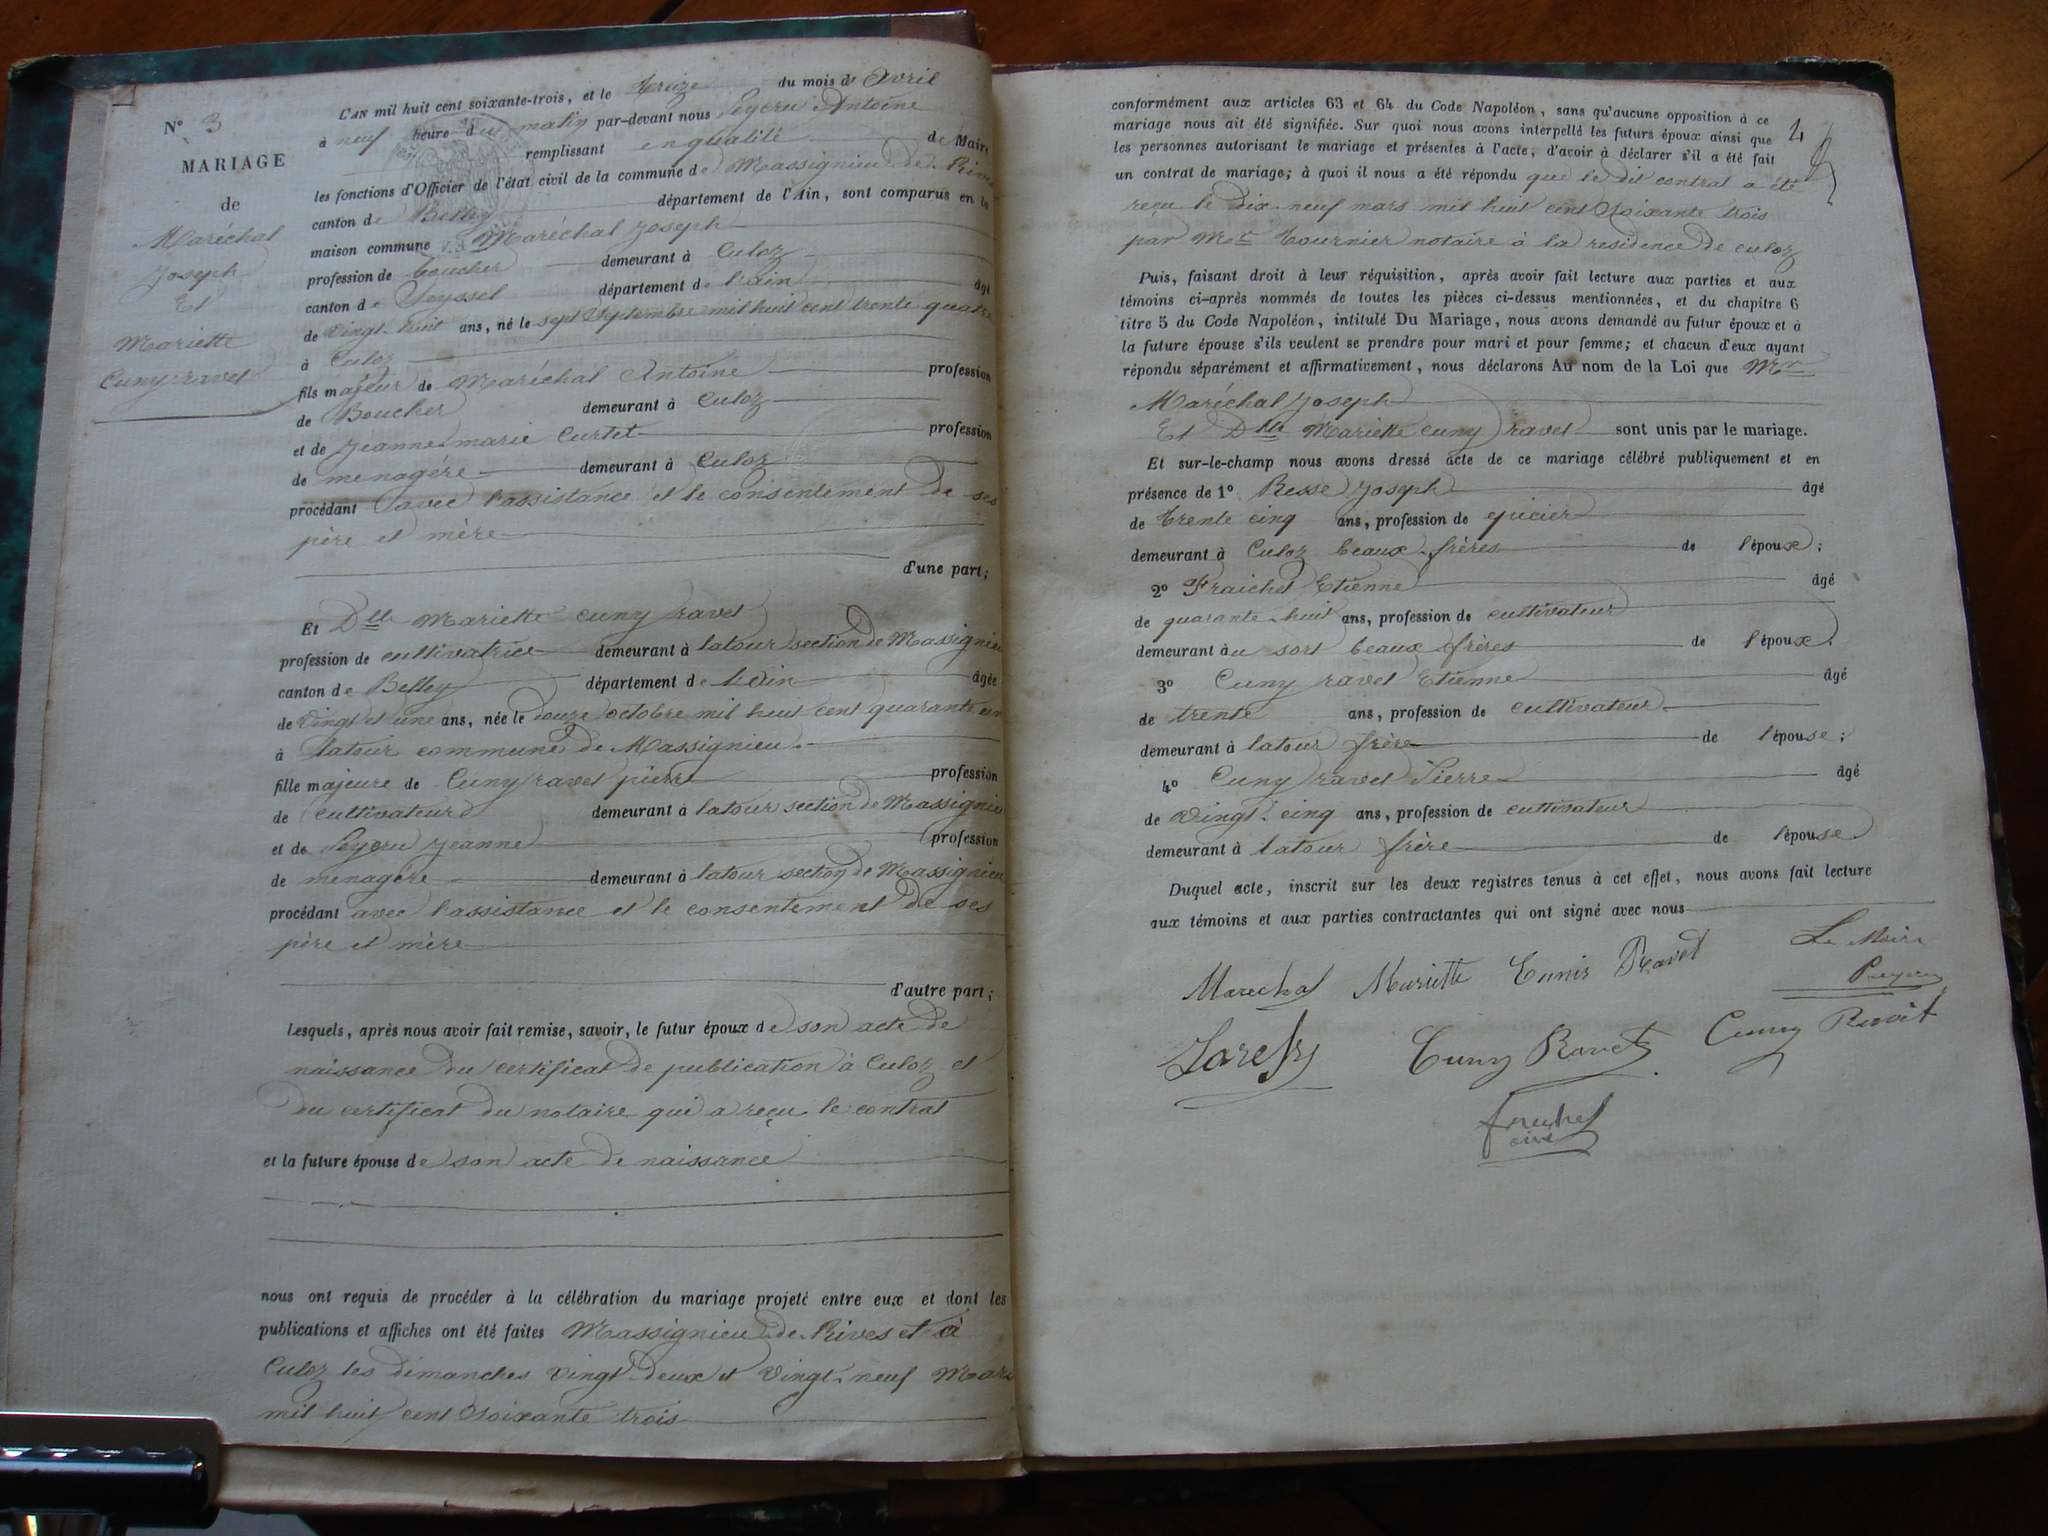 N° 3
MARIAGE
de
Maréchal
Joseph
Et
Mariette
Cuny ravet
L'AN mil huit cent soixante-trois, et le treize du mois de Avril
à neuf heure du matin par-devant nous Peycru Antoine
remplissant en qualité de Maire
les fonctions d'Officier de l'état civil de la commune de Massignieu de Rives
canton de Belley département de l'Ain, sont comparus en la
maison commune Maréchal Joseph
profession de boucher demeurant à Culoz
canton de Seyssel département de l'ain âgé
de vingt-huit ans, né le sept Septembre mil huit cent trente quatre
à Culoz
fils majeur de Maréchal Antoine profession
de Boucher demeurant à Culoz
et de Jeanne marie Curtet profession
de menagére demeurant à Culoz
procédant avec l'assistance et le consentement de ses
père et mère
d'une part;
Et Dlle Mariette cuny ravet
profession de cultivatrice demeurant à latour section de Massignieu
canton de Belley département de l'Ain âgée
de vingt et une ans, née le douze octobre mil huit cent quarante un
à latour commune de Massignieu
fille majeure de Cuny ravet pierre profession
de cultivateur demeurant à latour section de Massignieu
et de Peycru Jeanne profession
de menagère demeurant à latour section de Massignieu
procédant avec l'assistance et le consentement de ses
père et mère
d'autre part;
Lesquels, après nous avoir fait remise, savoir, le futur époux de son acte de
naissance du certificat de publication à Culoz et
du certificat du notaire qui a reçu le contrat
et la future épouse de son acte de naissance
nous ont requis de procéder à la célébration du mariage projeté entre eux et dont les
publications et affiches ont été faites Massignieu de Rives et à
Culoz les dimanches vingt-deux et vingt-neuf Mars
mil huit cent soixante trois
4
conformément aux articles 63 et 64 du Code Napoléon, sans qu'aucune opposition à ce
mariage nous ait été signifiée. Sur quoi nous avons interpellé les futurs époux ainsi que
les personnes autorisant le mariage et présentes à l'acte, d'avoir à déclarer s'il a été fait
un contrat de mariage; à quoi il nous a été répondu que le dit contrat a été
reçu le dix-neuf mars mil huit cent soixante trois
par Me Tournier notaire à la residence de culoz
Puis, faisant droit à leur réquisition, après avoir fait lecture aux parties et aux
témoins ci-après nommés de toutes les pièces ci-dessus mentionnées, et du chapitre 6
titre 5 du Code Napoléon, intitulé Du Mariage, nous avons demandé au futur époux et à
la future épouse s'ils veulent se prendre pour mari et pour femme; et chacun d'eux ayant
répondu séparément et affirmativement, nous déclarons Au nom de la Loi que Mr
Maréchal Joseph
Et Dlle Mariette cuny ravet sont unis par le mariage.
Et sur-le-champ nous avons dressé acte de ce mariage célébré publiquement et en
présence de 1° Besse Joseph âgé
de trente cinq ans, profession de epicier
demeurant à Culoz beaux-frères de l'époux;
2° Fraichet Etienne âgé
de quarante-huit ans, profession de cultivateur
demeurant au sort beaux frères de l'époux
3° Cuny ravet Etienne âgé
de trente ans, profession de cultivateur
demeurant à latour frère de l'épouse;
4° Cuny ravet Pierre âgé
de vingt-cinq ans, profession de cultivateur
demeurant à latour frère de l'épouse
Duquel acte, inscrit sur les deux registres tenus à cet effet, nous avons fait lecture
aux témoins et aux parties contractantes qui ont signé avec nous
Marechal Mariette Cunis Ravet Le Maire
Peycru
Cuny Ravet Cuny Ravet